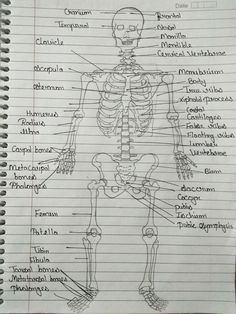 Date
Cranium
Temporal
Frontal
Nasal
Maxilla
Mandible
Cervical Vertebrae
Clavicle
Scapula
Sternum
Manubrium
Body
True ribs
Xiphoid process
Costal
Cartilages
False ribs
Floating ribs
Lumbar
Vertebrae
Humerus
Radius
Ulna
Carpal bones
Metacarpal
bones
Phalanges
Ilium
Sacrum
Coccyx
pubis
Ischium
Pubic Symphysis
Femur
Patella
Tibia
Fibula
Tarsal bones
Metatarsal bones
phalanges